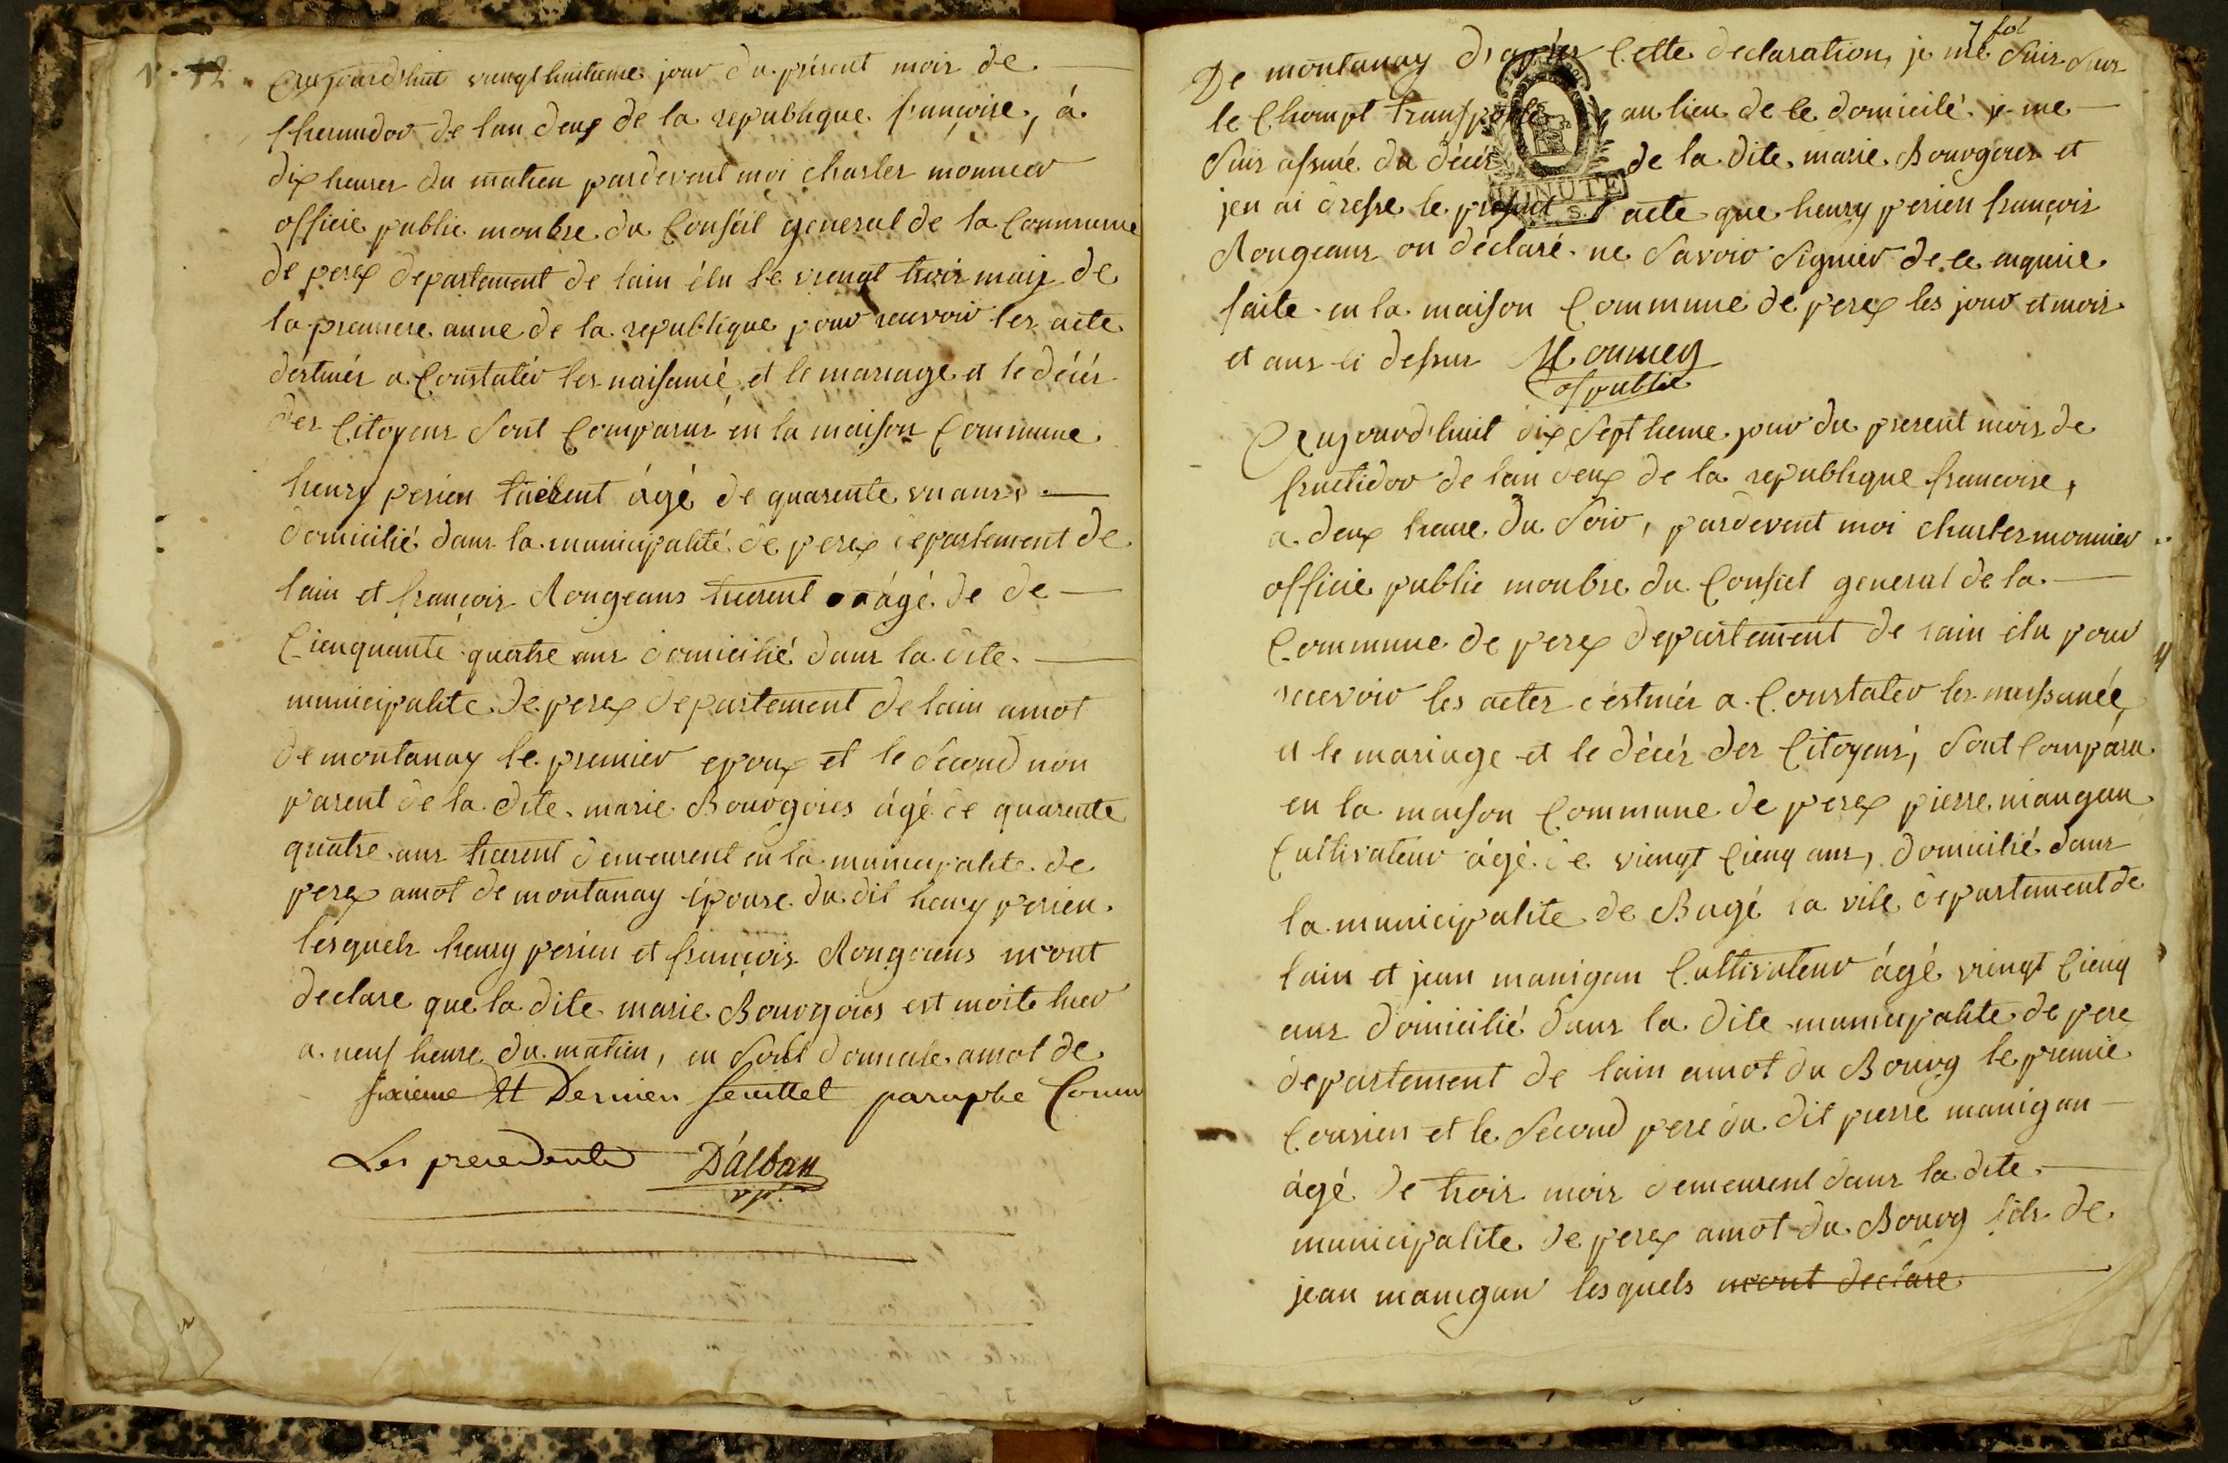 aujourd'huit viengt huitieme jour du présent mois de
thermidor de lan deux de la republique françoise, á
dix heures du matien pardevent moi charles monnier
officie public monbre du Conseil general de la Commune
de perex departement de lain élu le viengt trois mais de
la premiere anne de la republique pour recevoir les acte
destinés a Constatér les naisancé et le mariage et le décés
des Citoyens sont Comparus en la maison Commune
henry perien áge de quarente un ans
domicilié dans la municipalité de perex departement de
lain et françois Rongeans agé de de
Cienquante quatre ans domicilié dans la dite
municipalite de perex departement de lain amot
de montanay le premier epoux et le second non
parent de la dite marie Bourgoies ágé de quarente
quatre ans demeurent en la municipalite de
perex amot de montanay épouse du dit henry perien
lesquels henry perien et françois Rongeans m'ont
declare que la dite marie Bourgoies est morte hier
a neuf heure du matien, en domicile amot de
sixieme et Dernier feuillet paraphe Comm
Les precedents D'alban
7 fol
De montanay d'aprés Cette declaration, je me suis sur
le Champt transporte au lieu de ce domicile je me
suis assuré du décés de la dite marie Bourgoies et
MINUTE
jen ai dresse le présent acte que henry perien françois
Rongeans on déclaré ne savoir signier de ce enquerie
faite en la maison Commune de perex les jour et mois
et ans ci dessus Monnier
of public
Aujourd'huit dix septieme jour du present mois de
fructidor de lan deux de la republique francoise,
a deux heure du soir, pardevent moi charles monnier
officie public monbre du Conseil general de la
Commune de perex departement de lain élu pour
recevoir les actes destinés a Constater les naissancée
et le mariage et le décés des Citoyens, sont Comparu
en la maison Commune de perex pierre manigan
Cultivateur ágé de viengt Cienq ans, domicilié dans
la municipalite de Bagé la vile departement de
lain et jean manigan Cultivateur ágé viengt Cienq
ans domicilié dans la dite municipalite de pere
departement de lain amot du Bourg le premie
Cousien et le second pere du dit pierre manigan
ágé de trois mois demeurent dans la dite
municipalite de perex amot du Bourg fils de
jean manigan lesquels mont declare